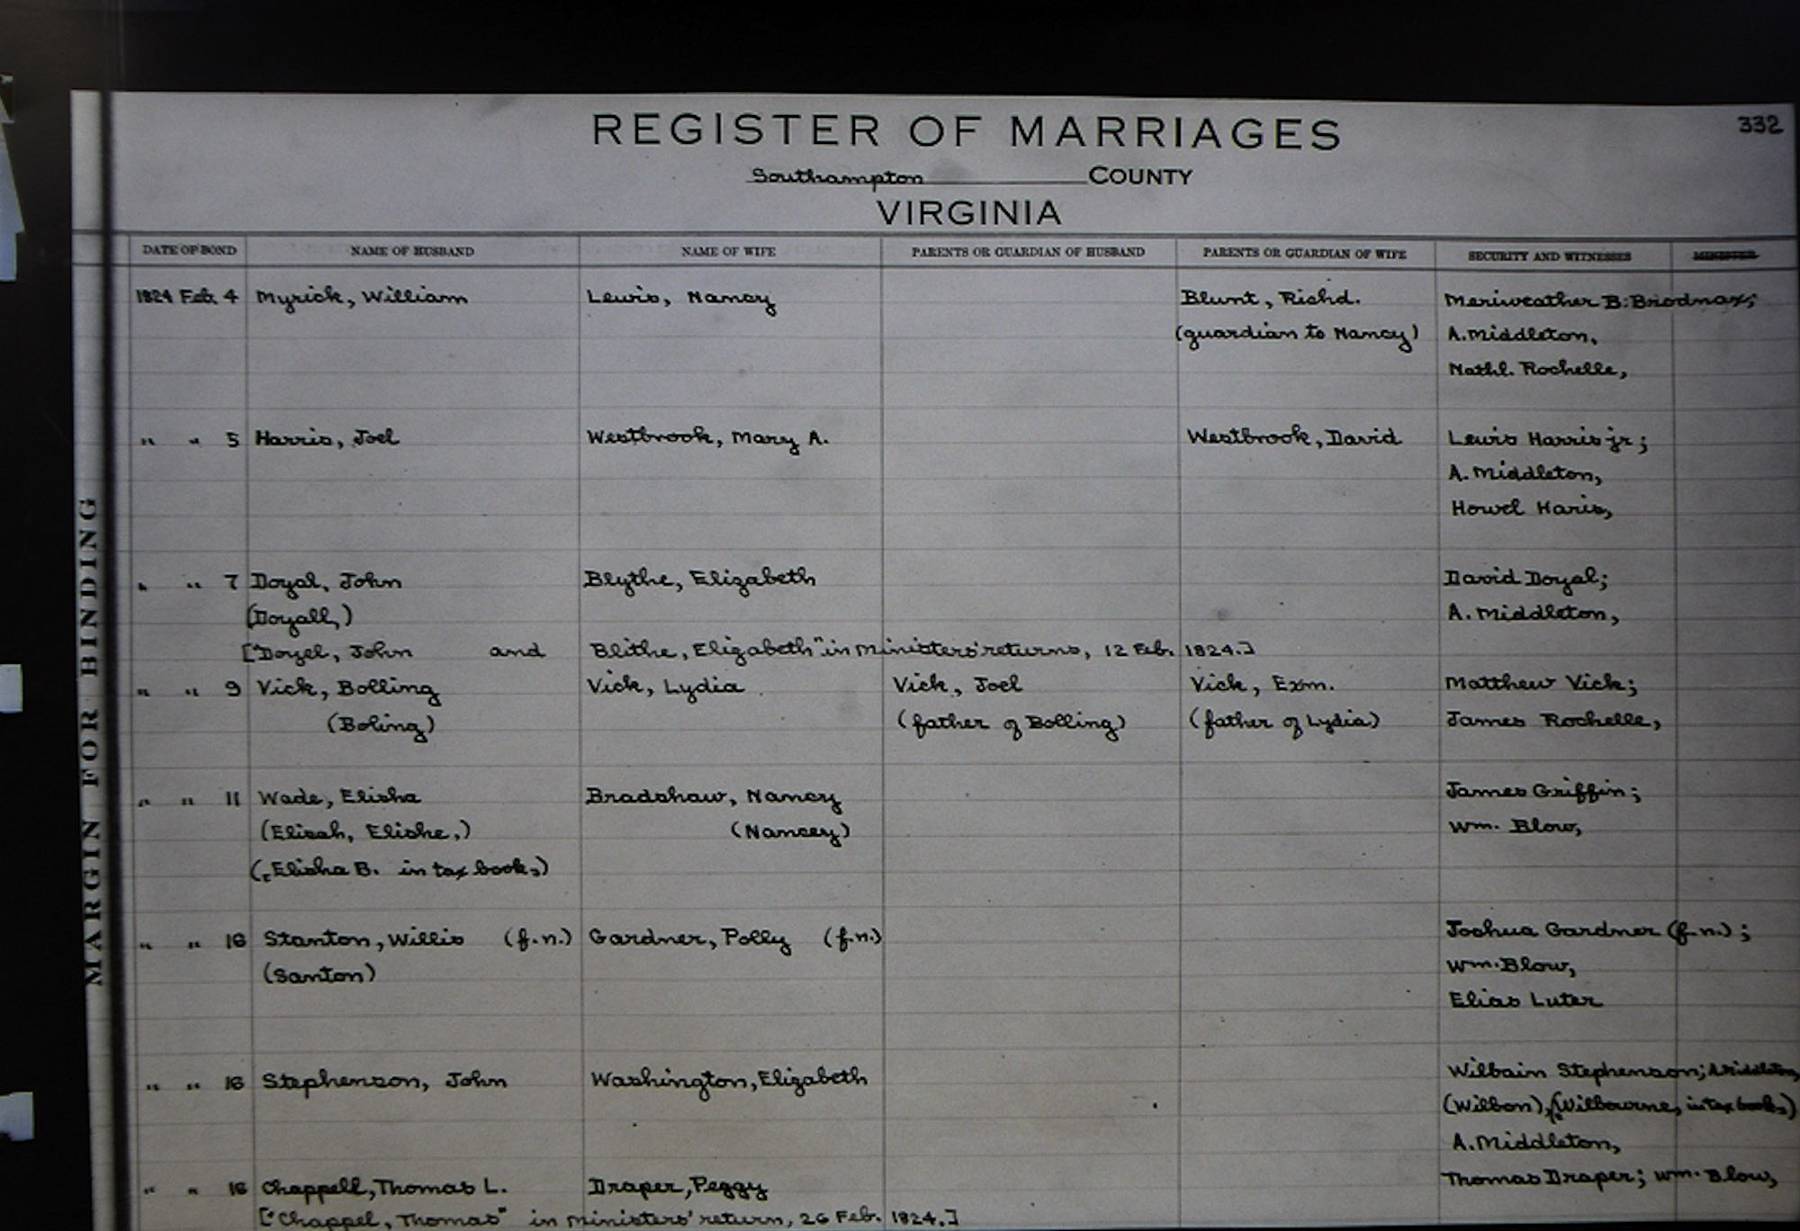 REGISTER OF MARRIAGES 332
Southampton COUNTY
VIRGINIA
DATE OF BOND NAME OF HUSBAND NAME OF WIFE PARENTS OR GUARDIAN OF HUSBAND PARENTS OR GUARDIAN OF WIFE SECURITY AND WITNESSES MINISTER
1824 Feb. 4 Myrick, William Lewis, Nancy Blunt, Richd. Meriweather B. Brodnax;
(guardian to Nancy) A. Middleton,
Nathl. Rochelle,
" " 5 Harris, Joel Westbrook, Mary A. Westbrook, David Lewis Harris jr;
A. Middleton,
Howel Haris,
" " 7 Doyal, John Blythe, Elizabeth David Doyal;
(Doyall,) A. Middleton,
["Doyel, John and Blithe, Elizabeth" in Ministers' returns, 12 Feb. 1824.]
" " 9 Vick, Bolling Vick, Lydia Vick, Joel Vick, Exm. Matthew Vick;
(Boling) (father of Bolling) (father of Lydia) James Rochelle,
" " 11 Wade, Elisha Bradshaw, Nancy James Griffin;
(Elisah, Elishe,) (Nancey) Wm. Blow,
(Elisha B. in tax books)
" " 16 Stanton, Willis (f.n.) Gardner, Polly (f.n.) Joshua Gardner (f.n.);
(Santon) Wm. Blow,
Elias Luter
" " 16 Stephenson, John Washington, Elizabeth Wilbain Stephenson; A. Middleton,
(Wilbon), (Wilbourne, in tax books)
A. Middleton,
" " 16 Chappell, Thomas L. Draper, Peggy Thomas Draper; Wm. Blow,
["Chappel, Thomas" in Ministers' return, 26 Feb. 1824.]
MARGIN FOR BINDING